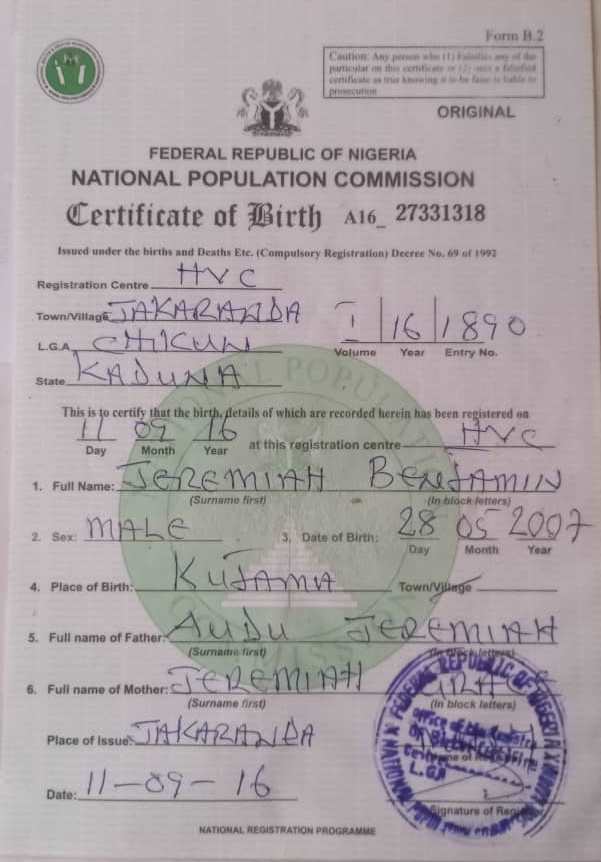 Form B.2
Caution: Any person who (1) Falsifies any of the
particular on this certificate or (2) uses a falsified
certificate as true knowing it to be false is liable to
prosecution
ORIGINAL
FEDERAL REPUBLIC OF NIGERIA
NATIONAL POPULATION COMMISSION
Certificate of Birth A16_ 27331318
Issued under the births and Deaths Etc. (Compulsory Registration) Decree No. 69 of 1992
Registration Centre HVC
Town/Village JAKARANDA
I 16 1890
L.G.A CHIKUN
Volume Year Entry No.
State KADUNA
This is to certify that the birth, details of which are recorded herein has been registered on
11 09 16 at this registration centre HVC
Day Month Year
1. Full Name: JEREMIAH BENJAMIN
(Surname first) (In block letters)
2. Sex: MALE 3. Date of Birth: 28 05 2007
Day Month Year
4. Place of Birth: KUJAMA Town/Village
5. Full name of Father: AUDU JEREMIAH
(Surname first) (In block letters)
6. Full name of Mother: JEREMIAH GRACE
(Surname first) (In block letters)
Place of Issue: JAKARANDA
Date: 11-09-16
Signature of Registrar
FEDERAL REPUBLIC OF NIGERIA
L.G.A
NATIONAL REGISTRATION PROGRAMME